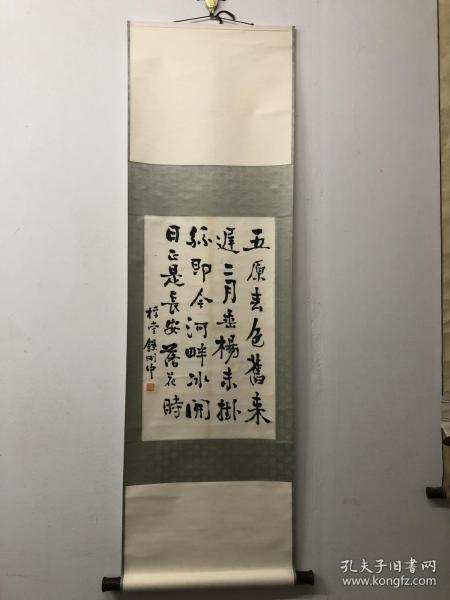 五原春色舊来
遲二月垂楊未掛
絲即今河畔冰開
日正是長安落花時
孔夫子旧书网
www.kongfz.com